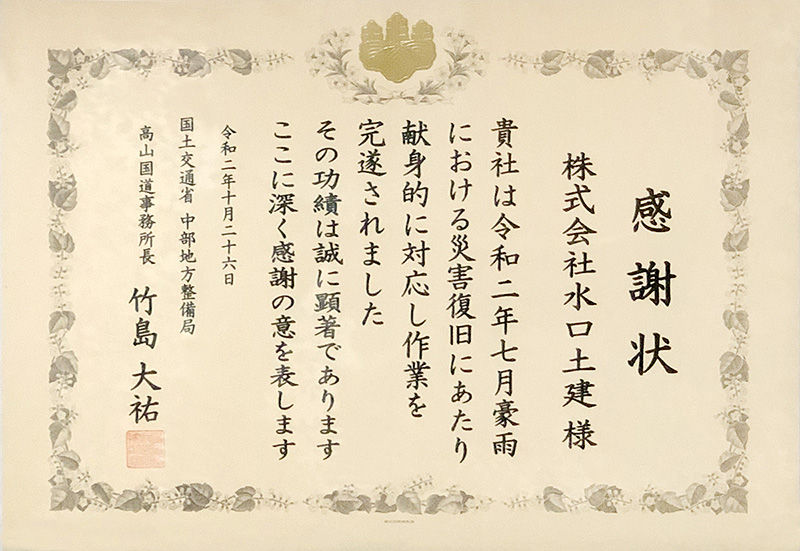 感謝状
株式会社水口土建 様
貴社は令和二年七月豪雨
における災害復旧にあたり
献身的に対応し作業を
完遂されました
その功績は誠に顕著であります
ここに深く感謝の意を表します
令和二年十月二十六日
国土交通省 中部地方整備局
高山国道事務所長 竹島 大祐